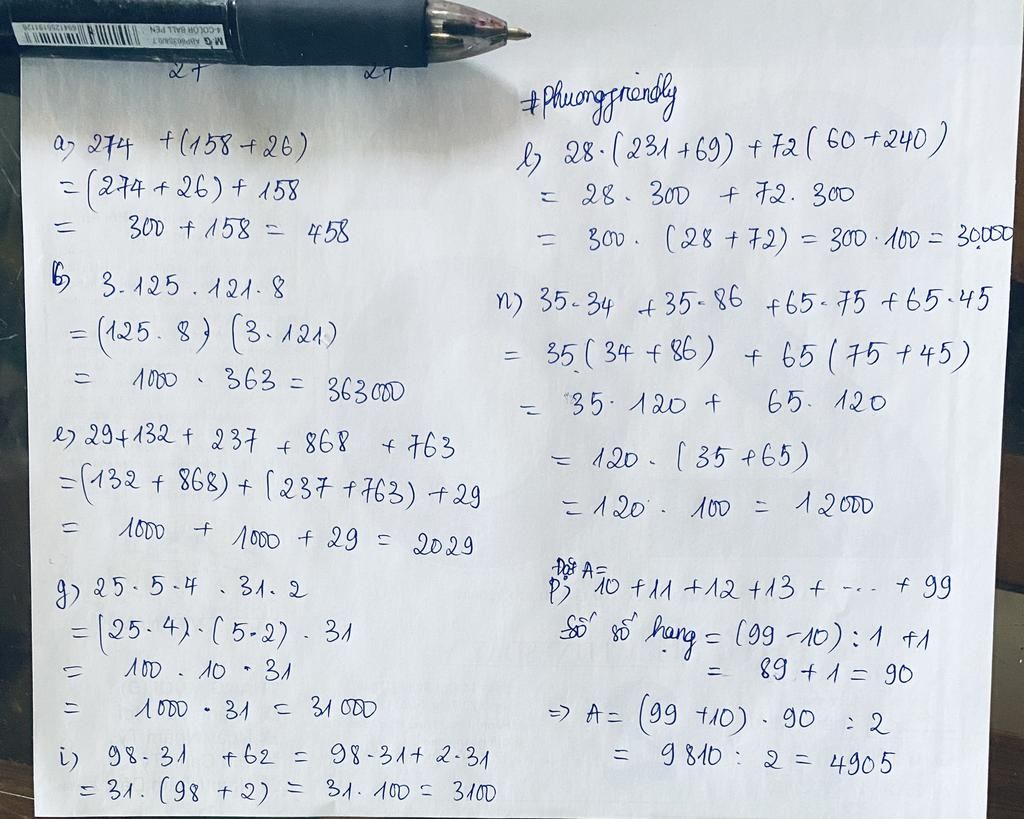 M&G ABP803S8/0.7
4-COLOR BALL PEN
27 27
#Phuongfriendly
a) 274 +(158+26)
=(274+26)+158
= 300 +158 = 458
b) 3.125.121.8
=(125.8) (3.121)
= 1000 . 363 = 363000
e) 29+132+ 237 +868 +763
=(132+868)+(237+763)+29
= 1000 + 1000 + 29 = 2029
g) 25.5.4 . 31.2
=(25.4).(5.2) . 31
= 100 . 10 . 31
= 1000 . 31 = 31000
i) 98.31 +62 = 98.31+ 2.31
=31. (98 + 2) = 31. 100 = 3100
l) 28.(231+69) +72(60+240)
= 28. 300 + 72. 300
= 300. (28+72) = 300.100 = 30.000
n) 35.34 +35.86 +65.75 +65.45
= 35(34+86) + 65(75+45)
= 35. 120 + 65. 120
= 120 . (35+65)
= 120 . 100 = 12000
Đặt A=
p) 10 +11 +12 +13 + .... + 99
Số số hạng = (99-10):1 +1
= 89 +1 = 90
=> A = (99 +10) . 90 : 2
= 9810 : 2 = 4905